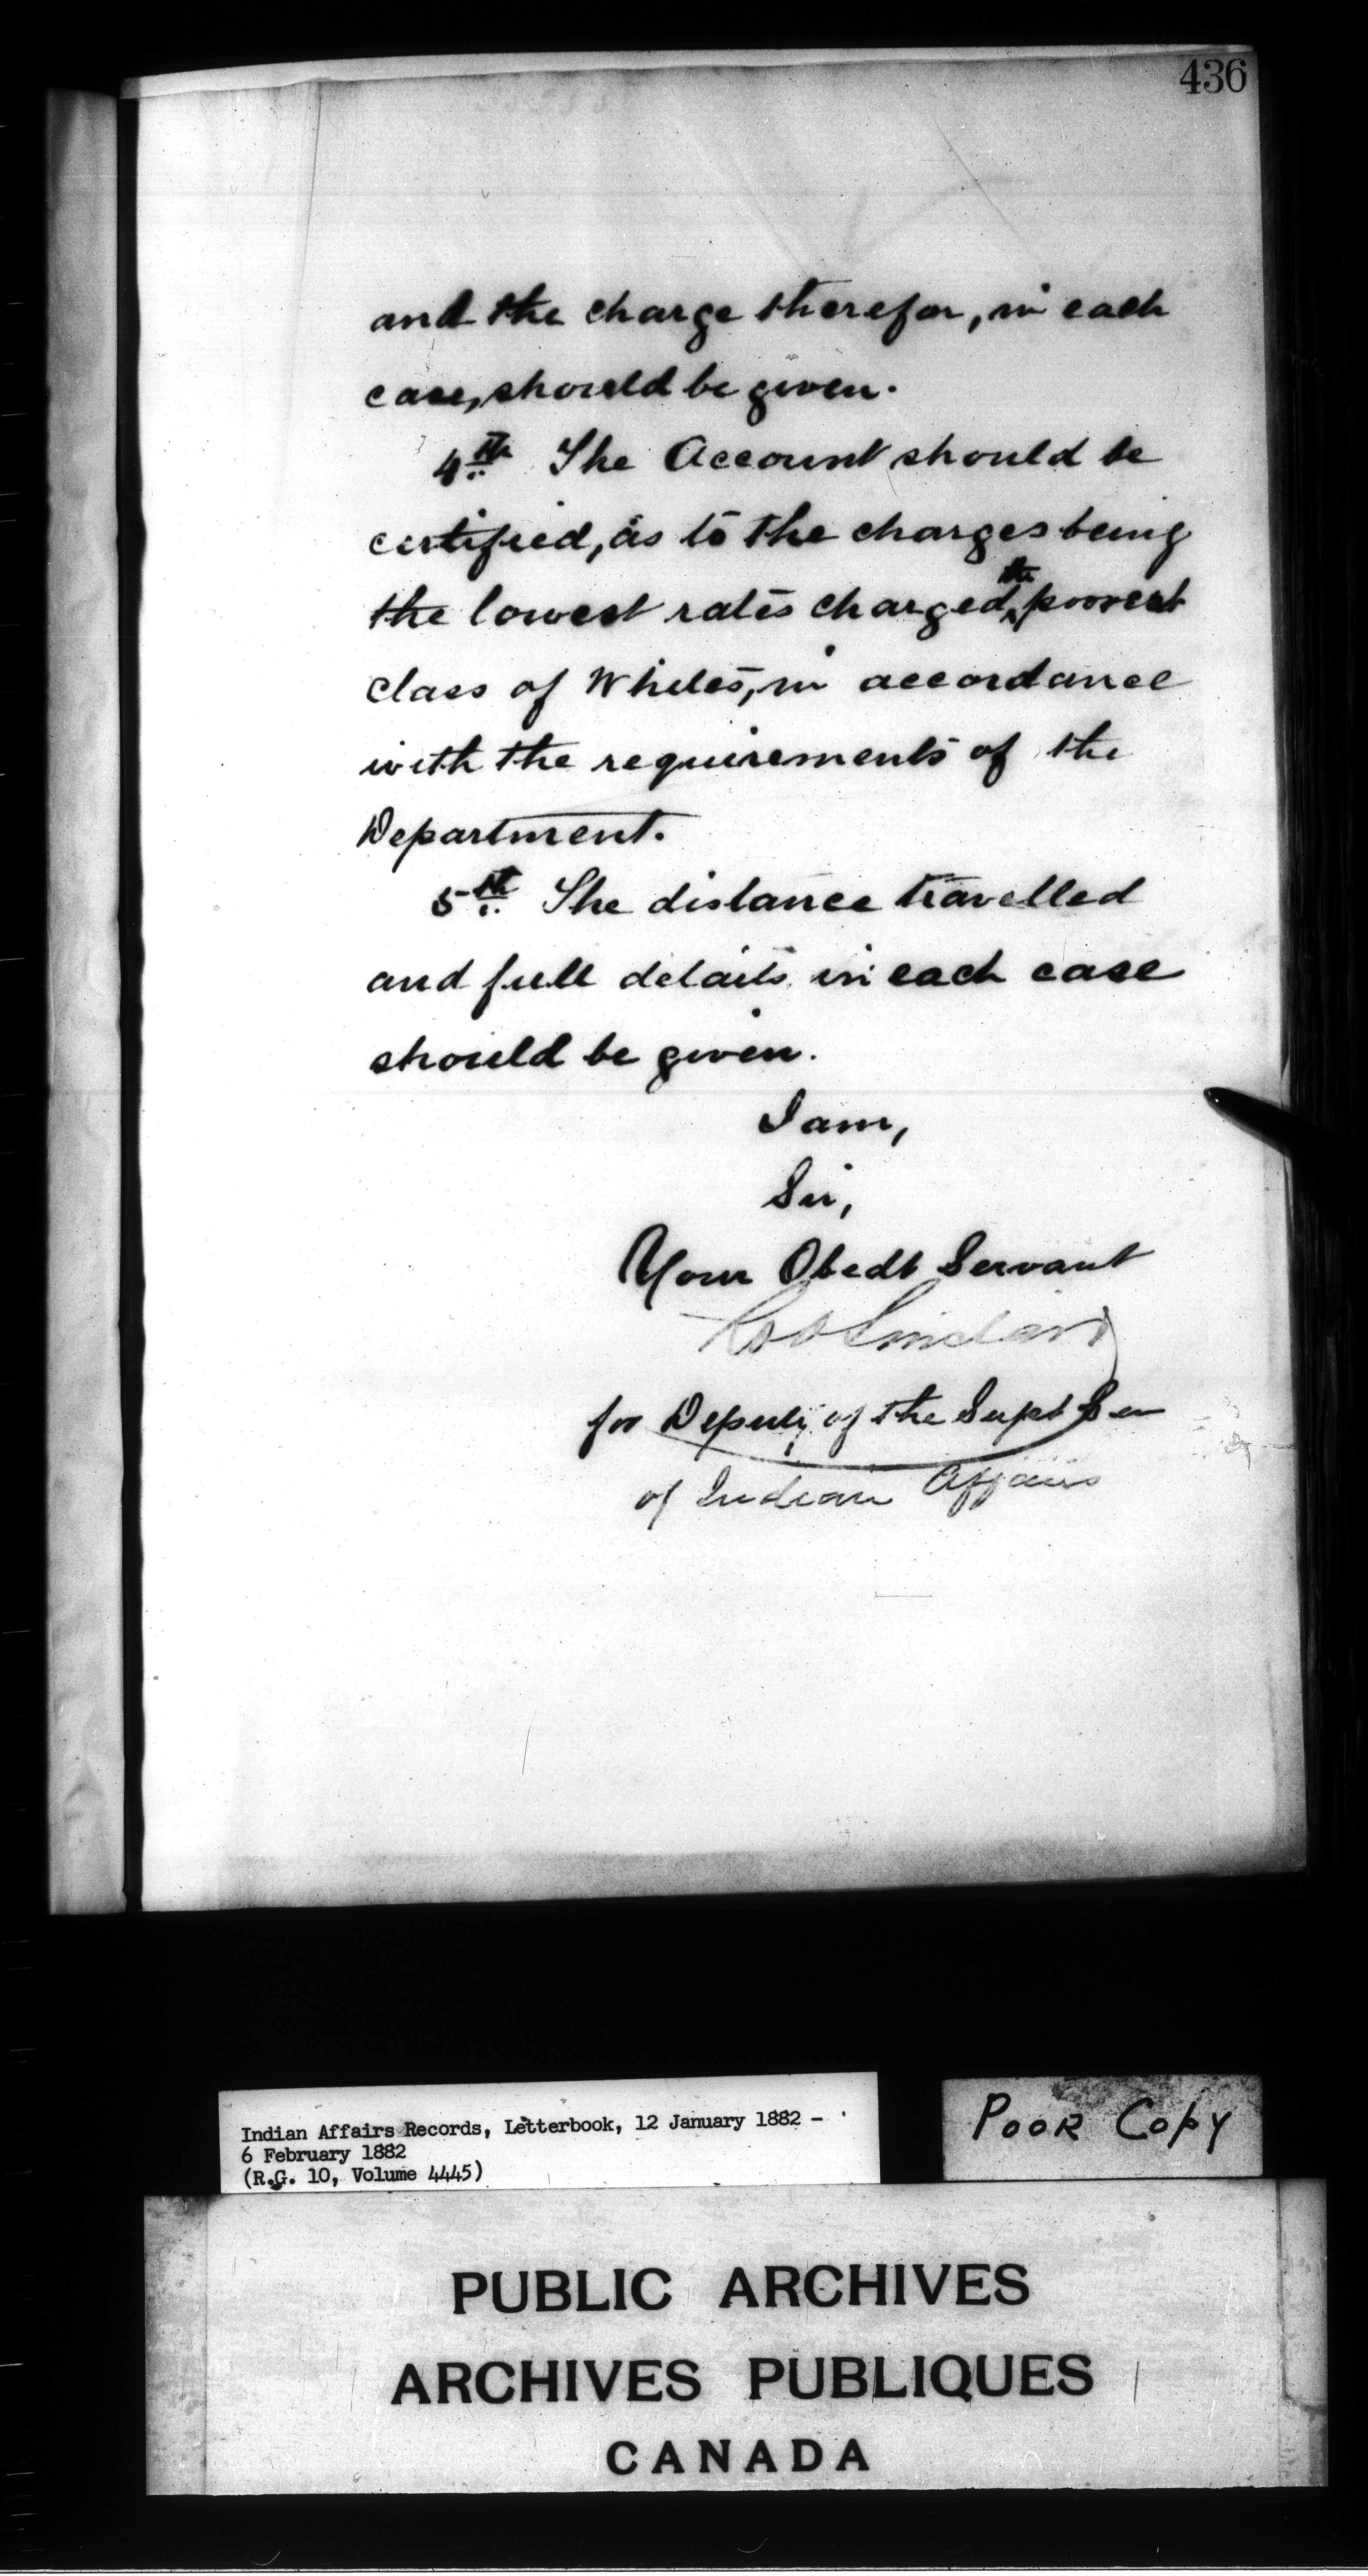 436
and the charge therefor, in each
case, should be given.
4th The Account should be
certified, as to the charges being
the
the lowest rates charged ^ poorest
class of Whites, in accordance
with the requirements of the
Department.
5th The distance travelled
and full details in each case
should be given.
I am,
Sir,
Your Obedt Servant
Sinclair
for Deputy of the Supt Gen
of Indian Affairs
Indian Affairs Records, Letterbook, 12 January 1882 -
6 February 1882
(R.G. 10, Volume 4445)
POOR COPY
PUBLIC ARCHIVES
ARCHIVES PUBLIQUES
CANADA